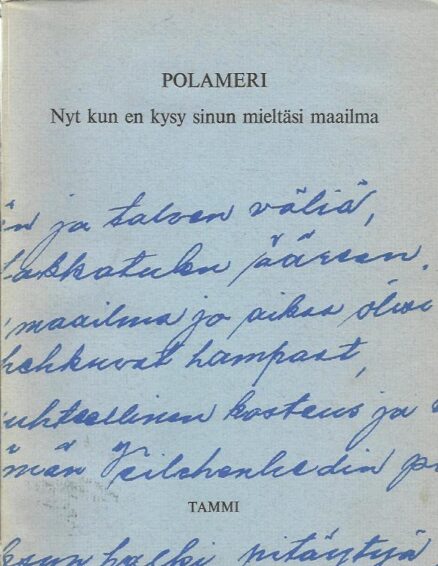 POLAMERI
Nyt kun en kysy sinun mieltäsi maailma
än ja talven väliä,
takkatulen ääreen.
maailma jo aikaa olisi
hehkuvat hampaat,
uhteellinen kosteus ja
män Veilchenhedin
TAMMI
halki pitäytyä